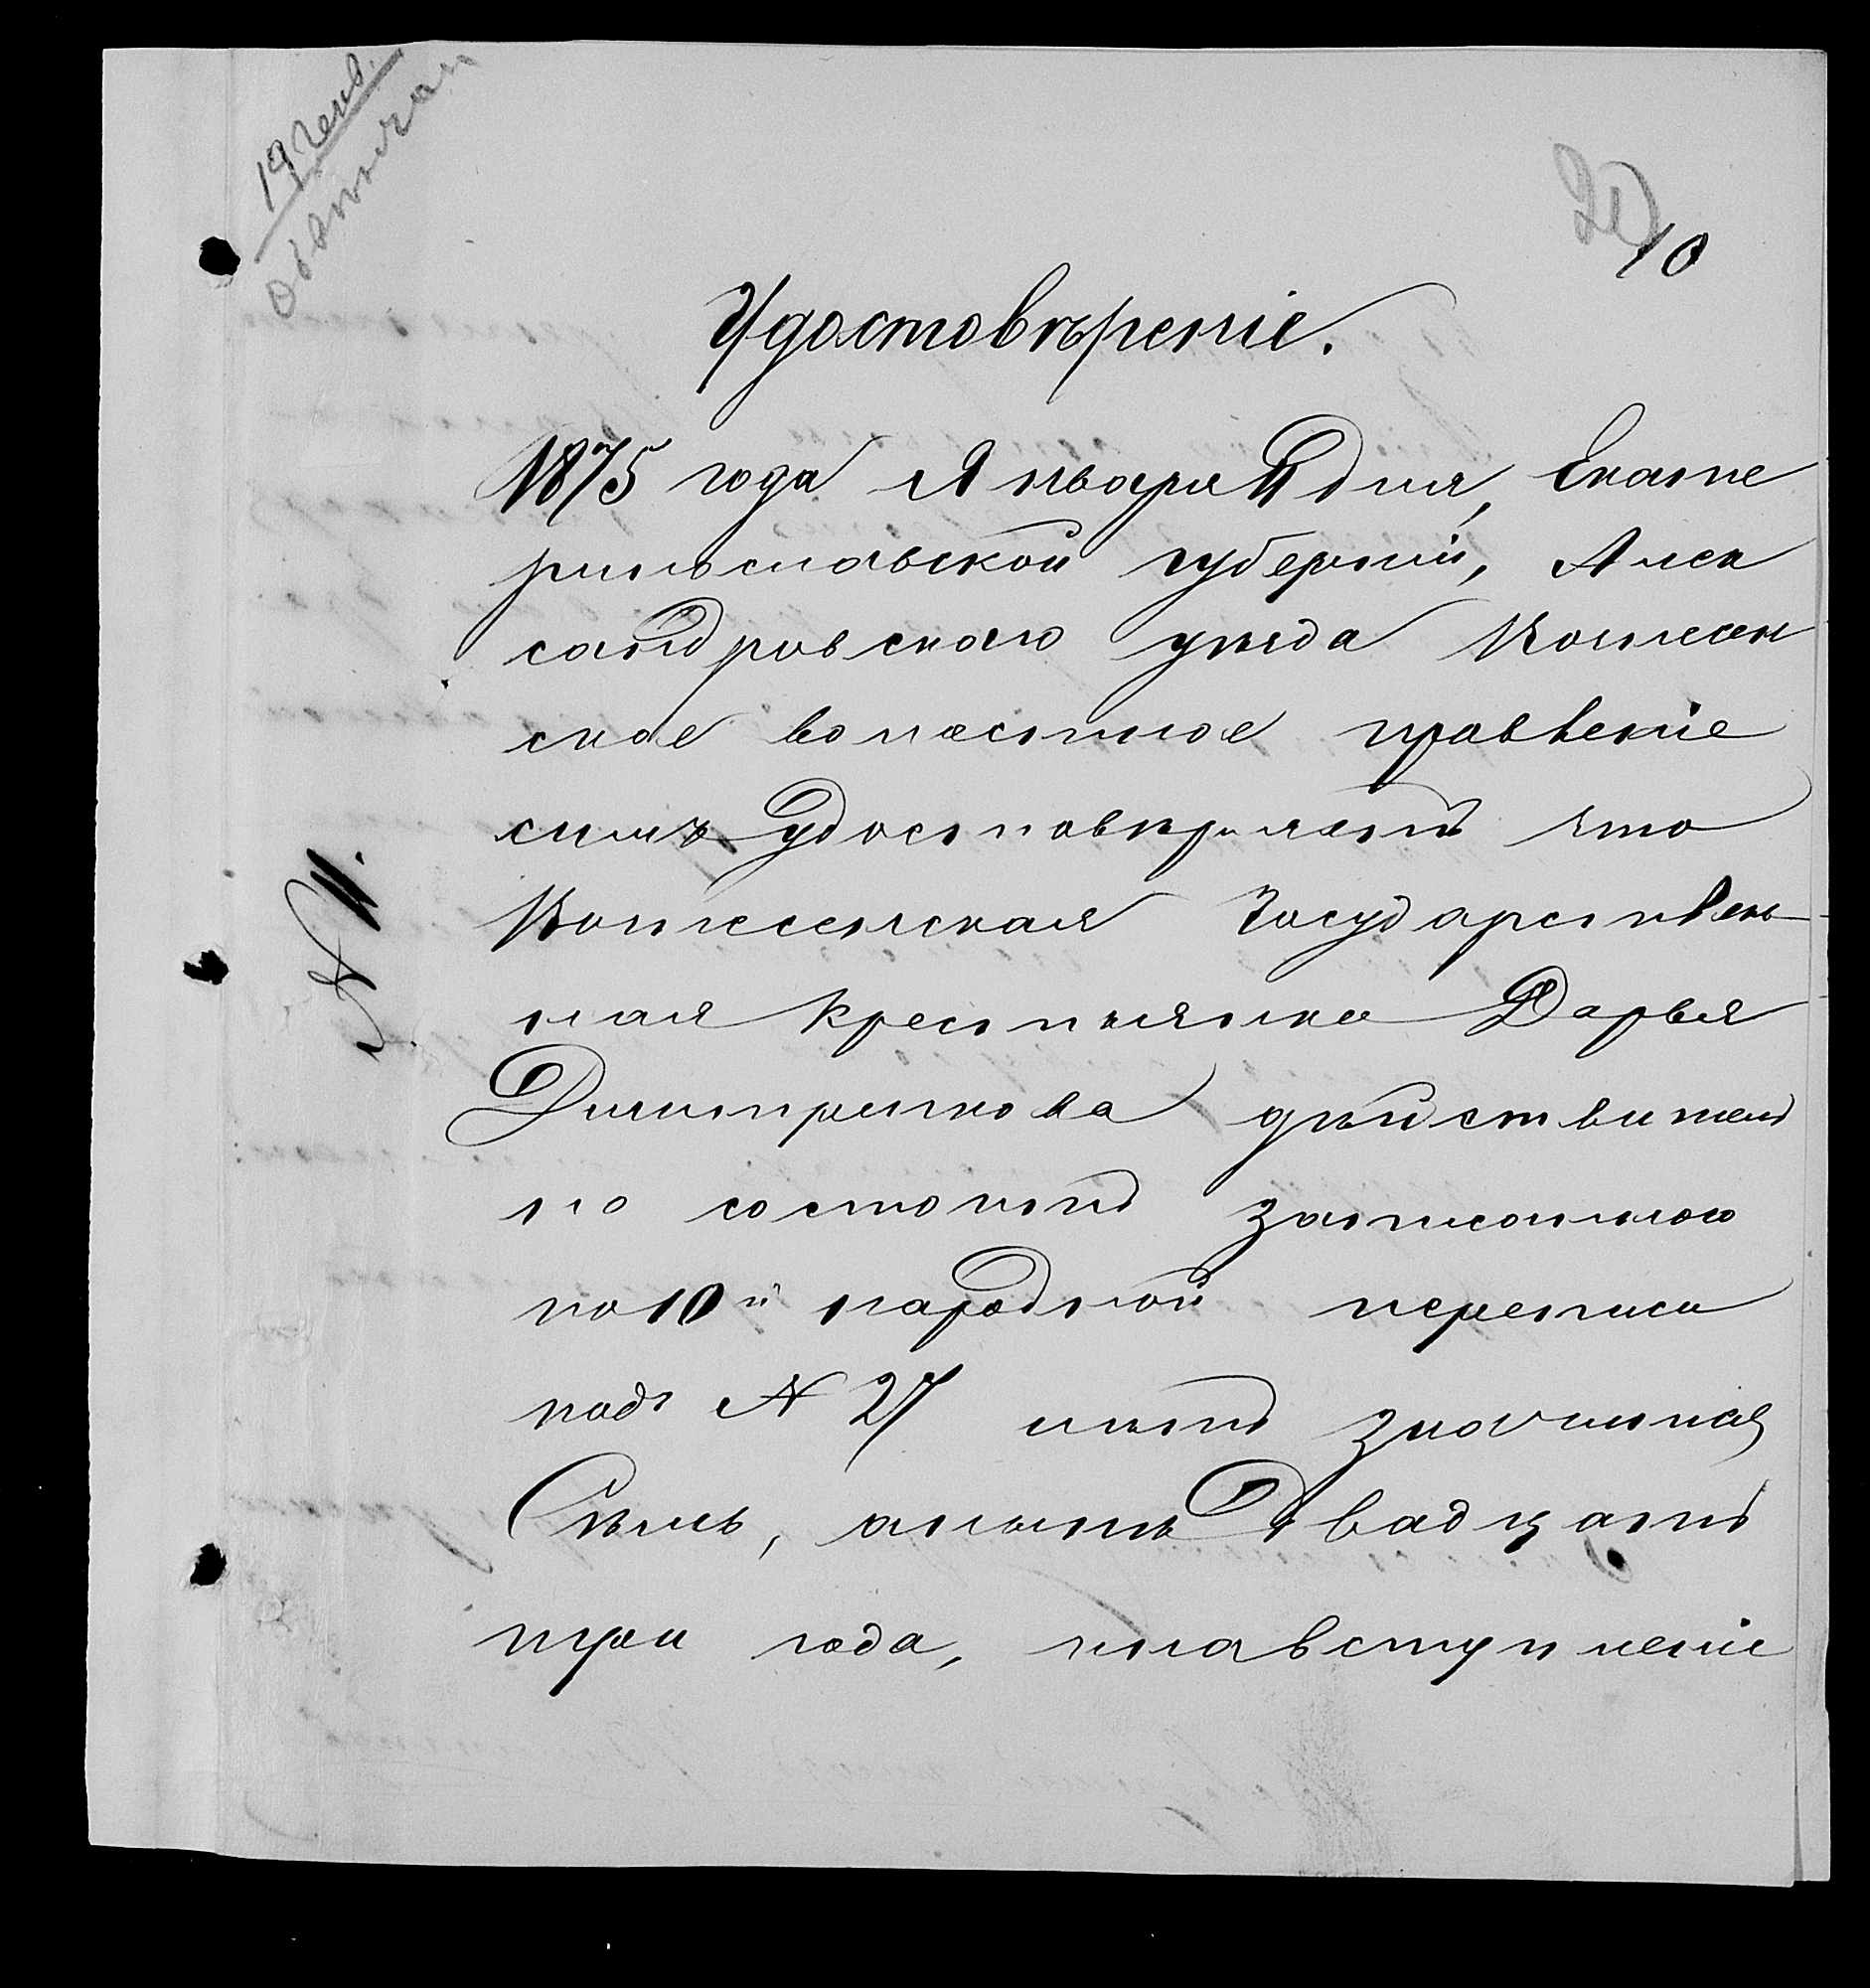 19 генв.
обвѣнчан
20
10
Удостовѣреніе.
1875 года Января 11 дня, Екате
ринославской губерніи, Алек
сандровскаго уѣзда
ское волостное правленіе
симъ удостовѣряетъ что
Государствен
ная крестьянка Дарья
Дмитренкова дѣйствитель
но состоитъ записанною
по 10й народной переписи
подъ № 27 лѣтъ значится
Семь, а нынѣ Двадцать
три года, и на вступленіе
№ 11.